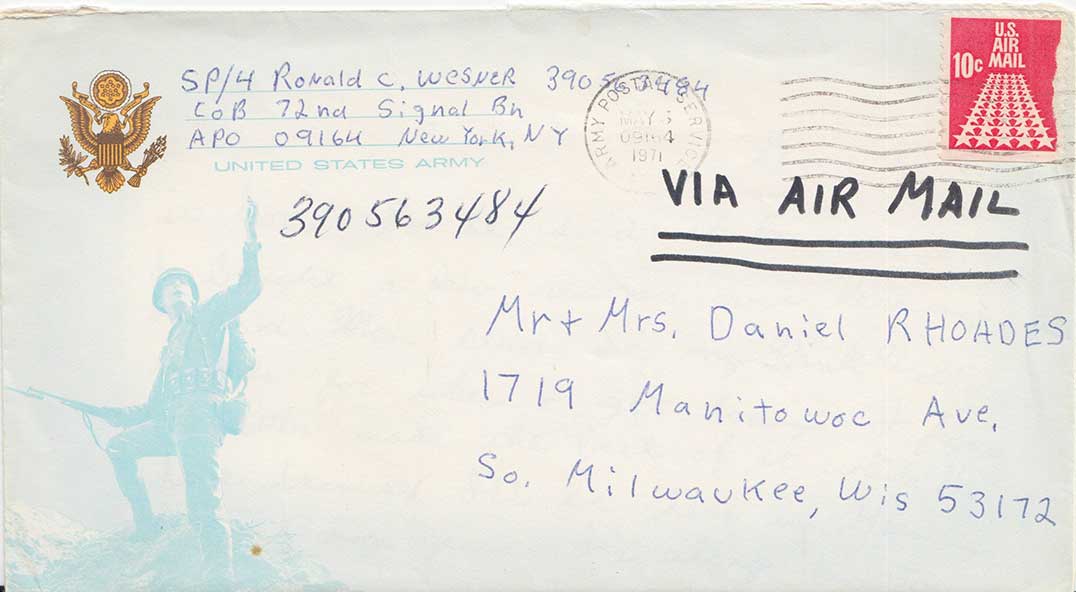 SP/4 Ronald C. WESNER 390563484
CoB 72nd Signal Bn
APO 09164 New York, NY
UNITED STATES ARMY
390563484
ARMY POSTAL SERVICE
MAY
09164
1971
U.S.
AIR
MAIL
10c
VIA AIR MAIL
Mr + Mrs. Daniel RHOADES
1719 Manitowoc Ave.
So. Milwaukee, Wis 53172